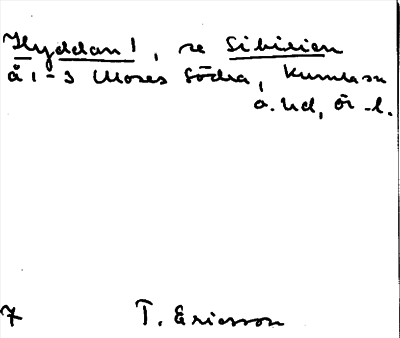 Hyddan 1, se Sibirien
å 1-3 Moses Södra, Kumla sn
o. hd, Ör. l.
7 T. Ericsson